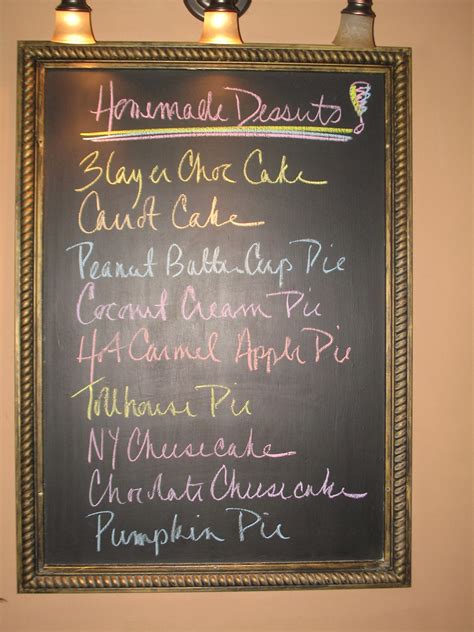 Homemade Desserts!
3 layer Choc Cake
Carrot Cake
Peanut Butter Cup Pie
Coconut Cream Pie
Hot Carmel Apple Pie
Tollhouse Pie
NY Cheesecake
Chocolate Cheesecake
Pumpkin Pie